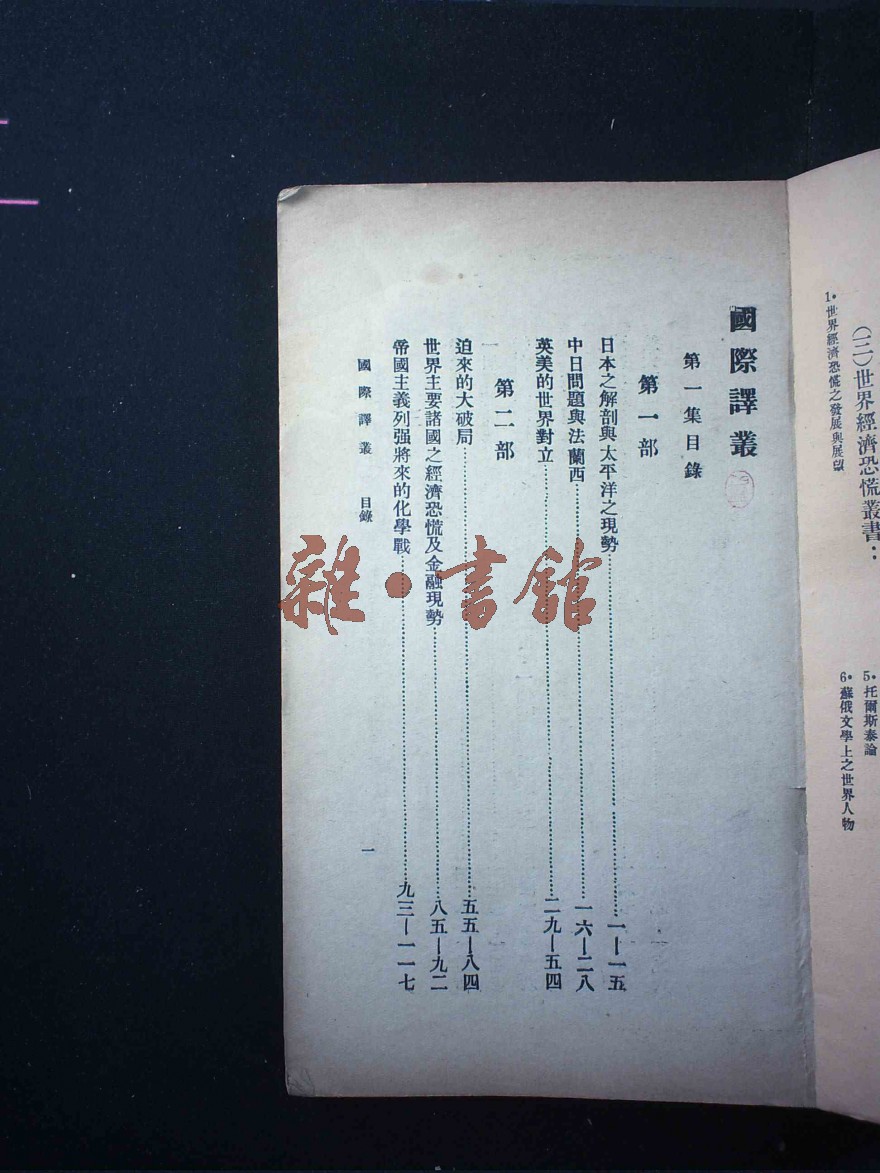 (三)世界經濟恐慌叢書：
1•世界經濟恐慌之發展與展望
5•托爾斯泰論
6•蘇俄文學上之世界人物
國際譯叢
第一集目錄
第一部
日本之解剖與太平洋之現勢……一—一五
中日問題與法蘭西……一六—二八
英美的世界對立……二九—五四
第二部
迫來的大破局……五五—八四
世界主要諸國之經濟恐慌及金融現勢……八五—九二
帝國主義列强將來的化學戰……九三—一一七
國際譯叢 目錄 一
雜•書館